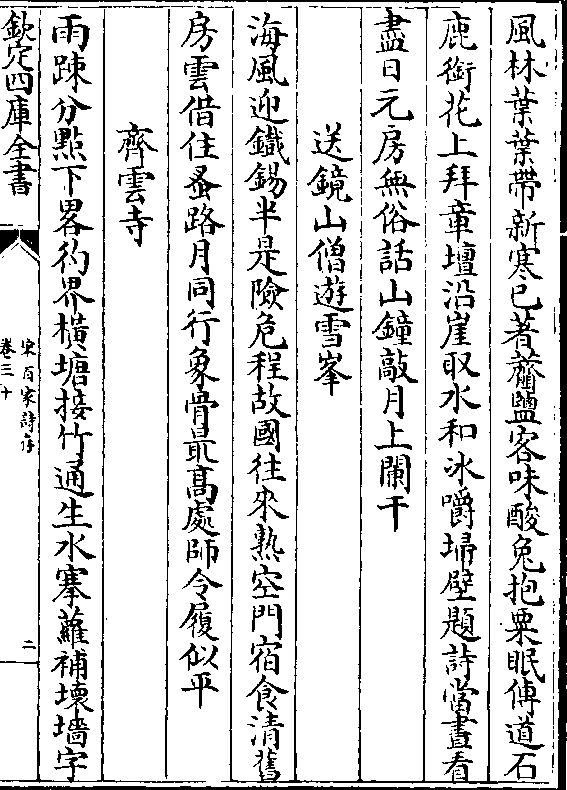 風林葉葉帶新寒已著虀鹽客味酸兔抱栗眠傳道石
鹿銜花上拜章壇沿崖取水和氷嚼埽壁題詩當畫看
盡日元房無俗話山鐘敲月上闌干
送鏡山僧遊雪峯
海風迎鐵錫半是險危程故國往來熟空門宿食清舊
房雲借住蚤路月同行象骨最高處師令履似平
齊雲寺
雨踈分點下畧彴界橫塘接竹通生水搴蘿補壞墻字
欽定四庫全書
宋百家詩存
卷三十
二